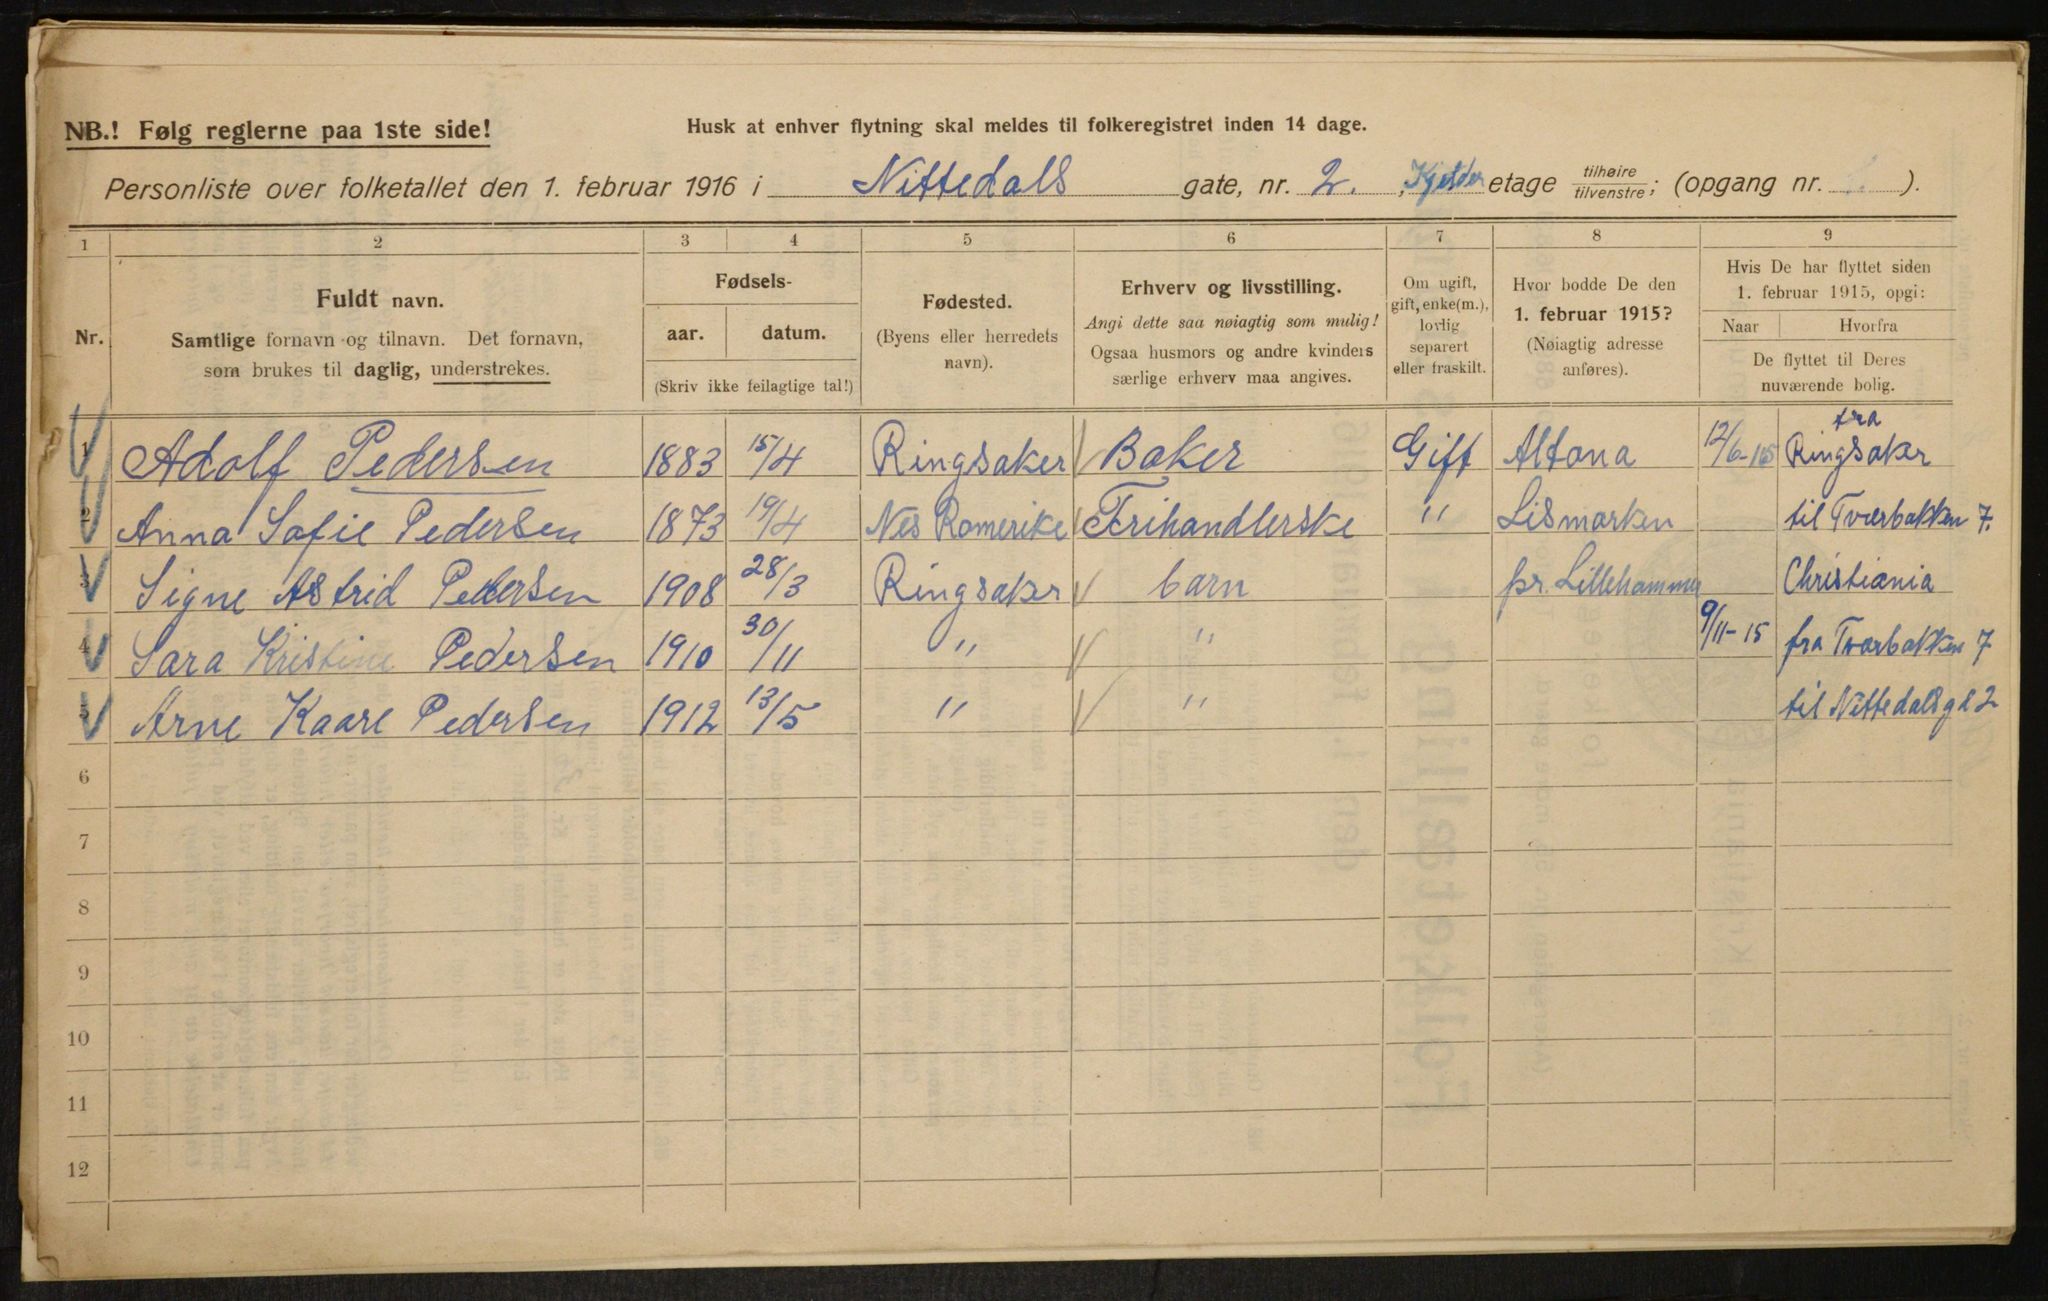 NB.! Følg reglerne paa 1ste side!
Husk at enhver flytning skal meldes til folkeregistret inden 14 dage.
Personliste over folketallet den 1. februar 1916 i Nittedals gate, nr. 2. , Kjelder etage tilhøire/tilvenstre; (opgang nr. ).
1 2 3 4 5 6 7 8 9
Nr.
Fuldt navn.
Samtlige fornavn og tilnavn. Det fornavn,
som brukes til daglig, understrekes.
Fødsels-
aar. datum.
(Skriv ikke feilagtige tal!)
Fødested.
(Byens eller herredets
navn).
Erhverv og livsstilling.
Angi dette saa nøiagtig som mulig!
Ogsaa husmors og andre kvinders
særlige erhverv maa angives.
Om ugift,
gift, enke(m.),
lovlig
separert
eller fraskilt.
Hvor bodde De den
1. februar 1915?
(Nøiagtig adresse
anføres).
Hvis De har flyttet siden
1. februar 1915, opgi:
Naar Hvorfra
De flyttet til Deres
nuværende bolig.
1 Adolf Pedersen 1883 15/4 Ringsaker Baker Gift Altona 12/6-15 fra Ringsaker
2 Anna Sofie Pedersen 1873 19/4 Nes Romerike Frihandlerske " Lismarken til Tværbakken 7.
3 Signe Astrid Pedersen 1908 28/3 Ringsaker barn pr. Lillehammer Christiania
4 Sara Kristine Pedersen 1910 30/11 " " 9/11-15 fra Tværbakken 7
5 Arne Kaare Pedersen 1912 13/5 " " til Nittedalsgd 2
6
7
8
9
10
11
12